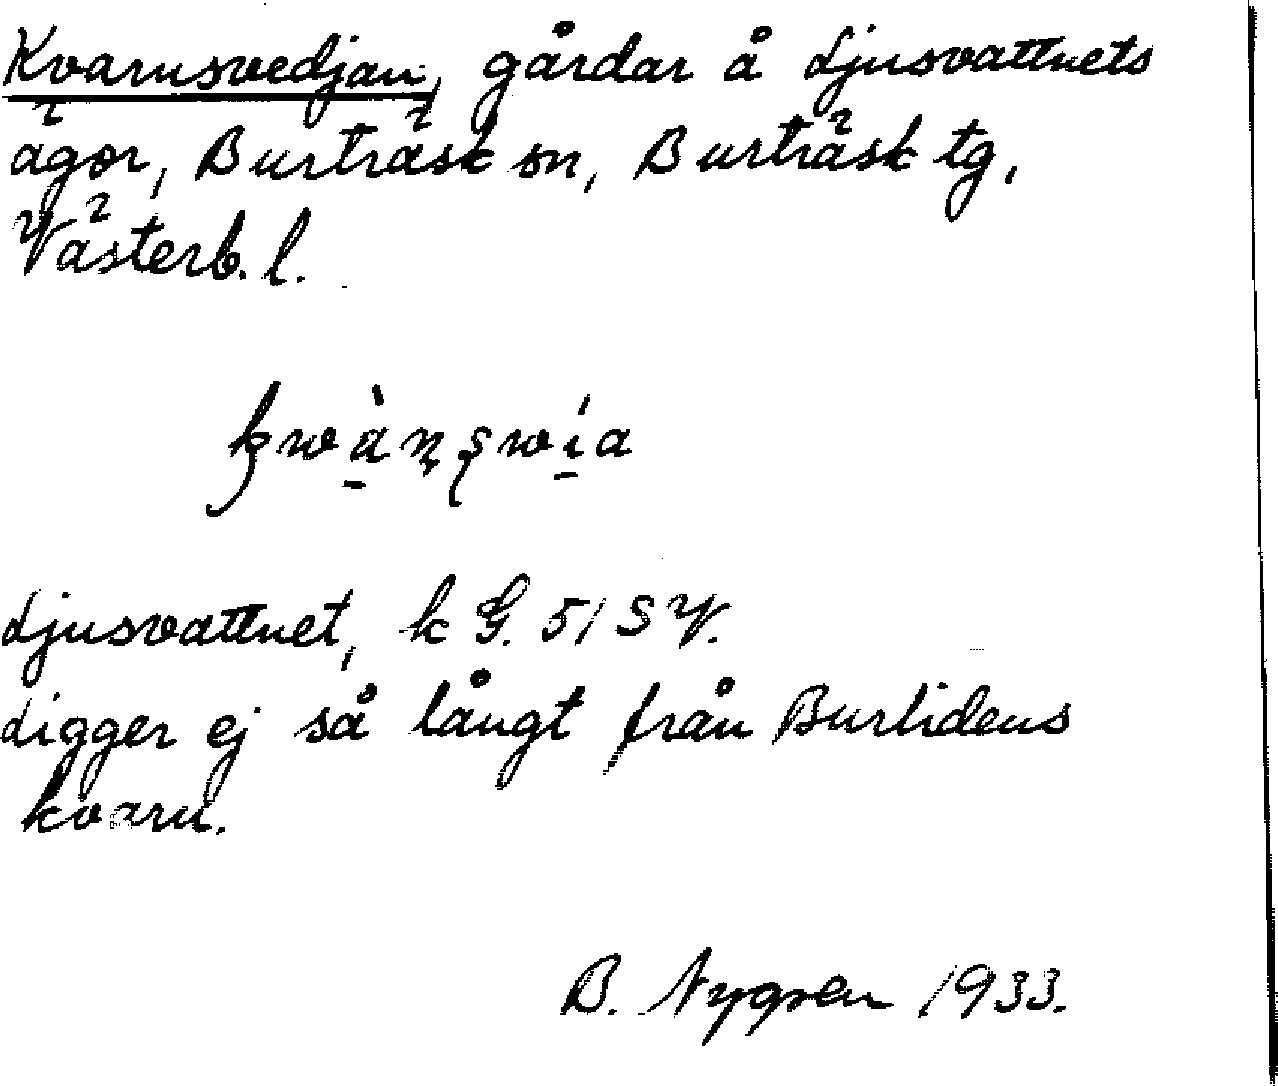 Kvarnsvedjan, gårdar å Ljusvattnets
ägor, Burträsk sn, Burträsk tg,
Västerb. l.
kwànswía
Ljusvattnet, k G. 51 S V.
Ligger ej så långt från Burlidens
kvarn.
B. Nygren 1933.